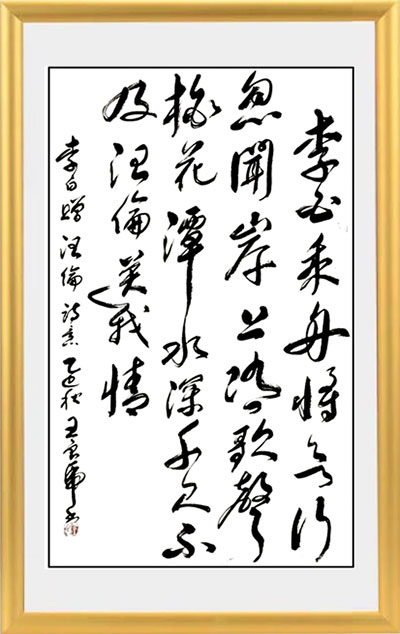 李白乘舟將欲行
忽聞岸上踏歌聲
桃花潭水深千尺不
及汪倫送我情
李白贈汪倫詩意乙巳秋王